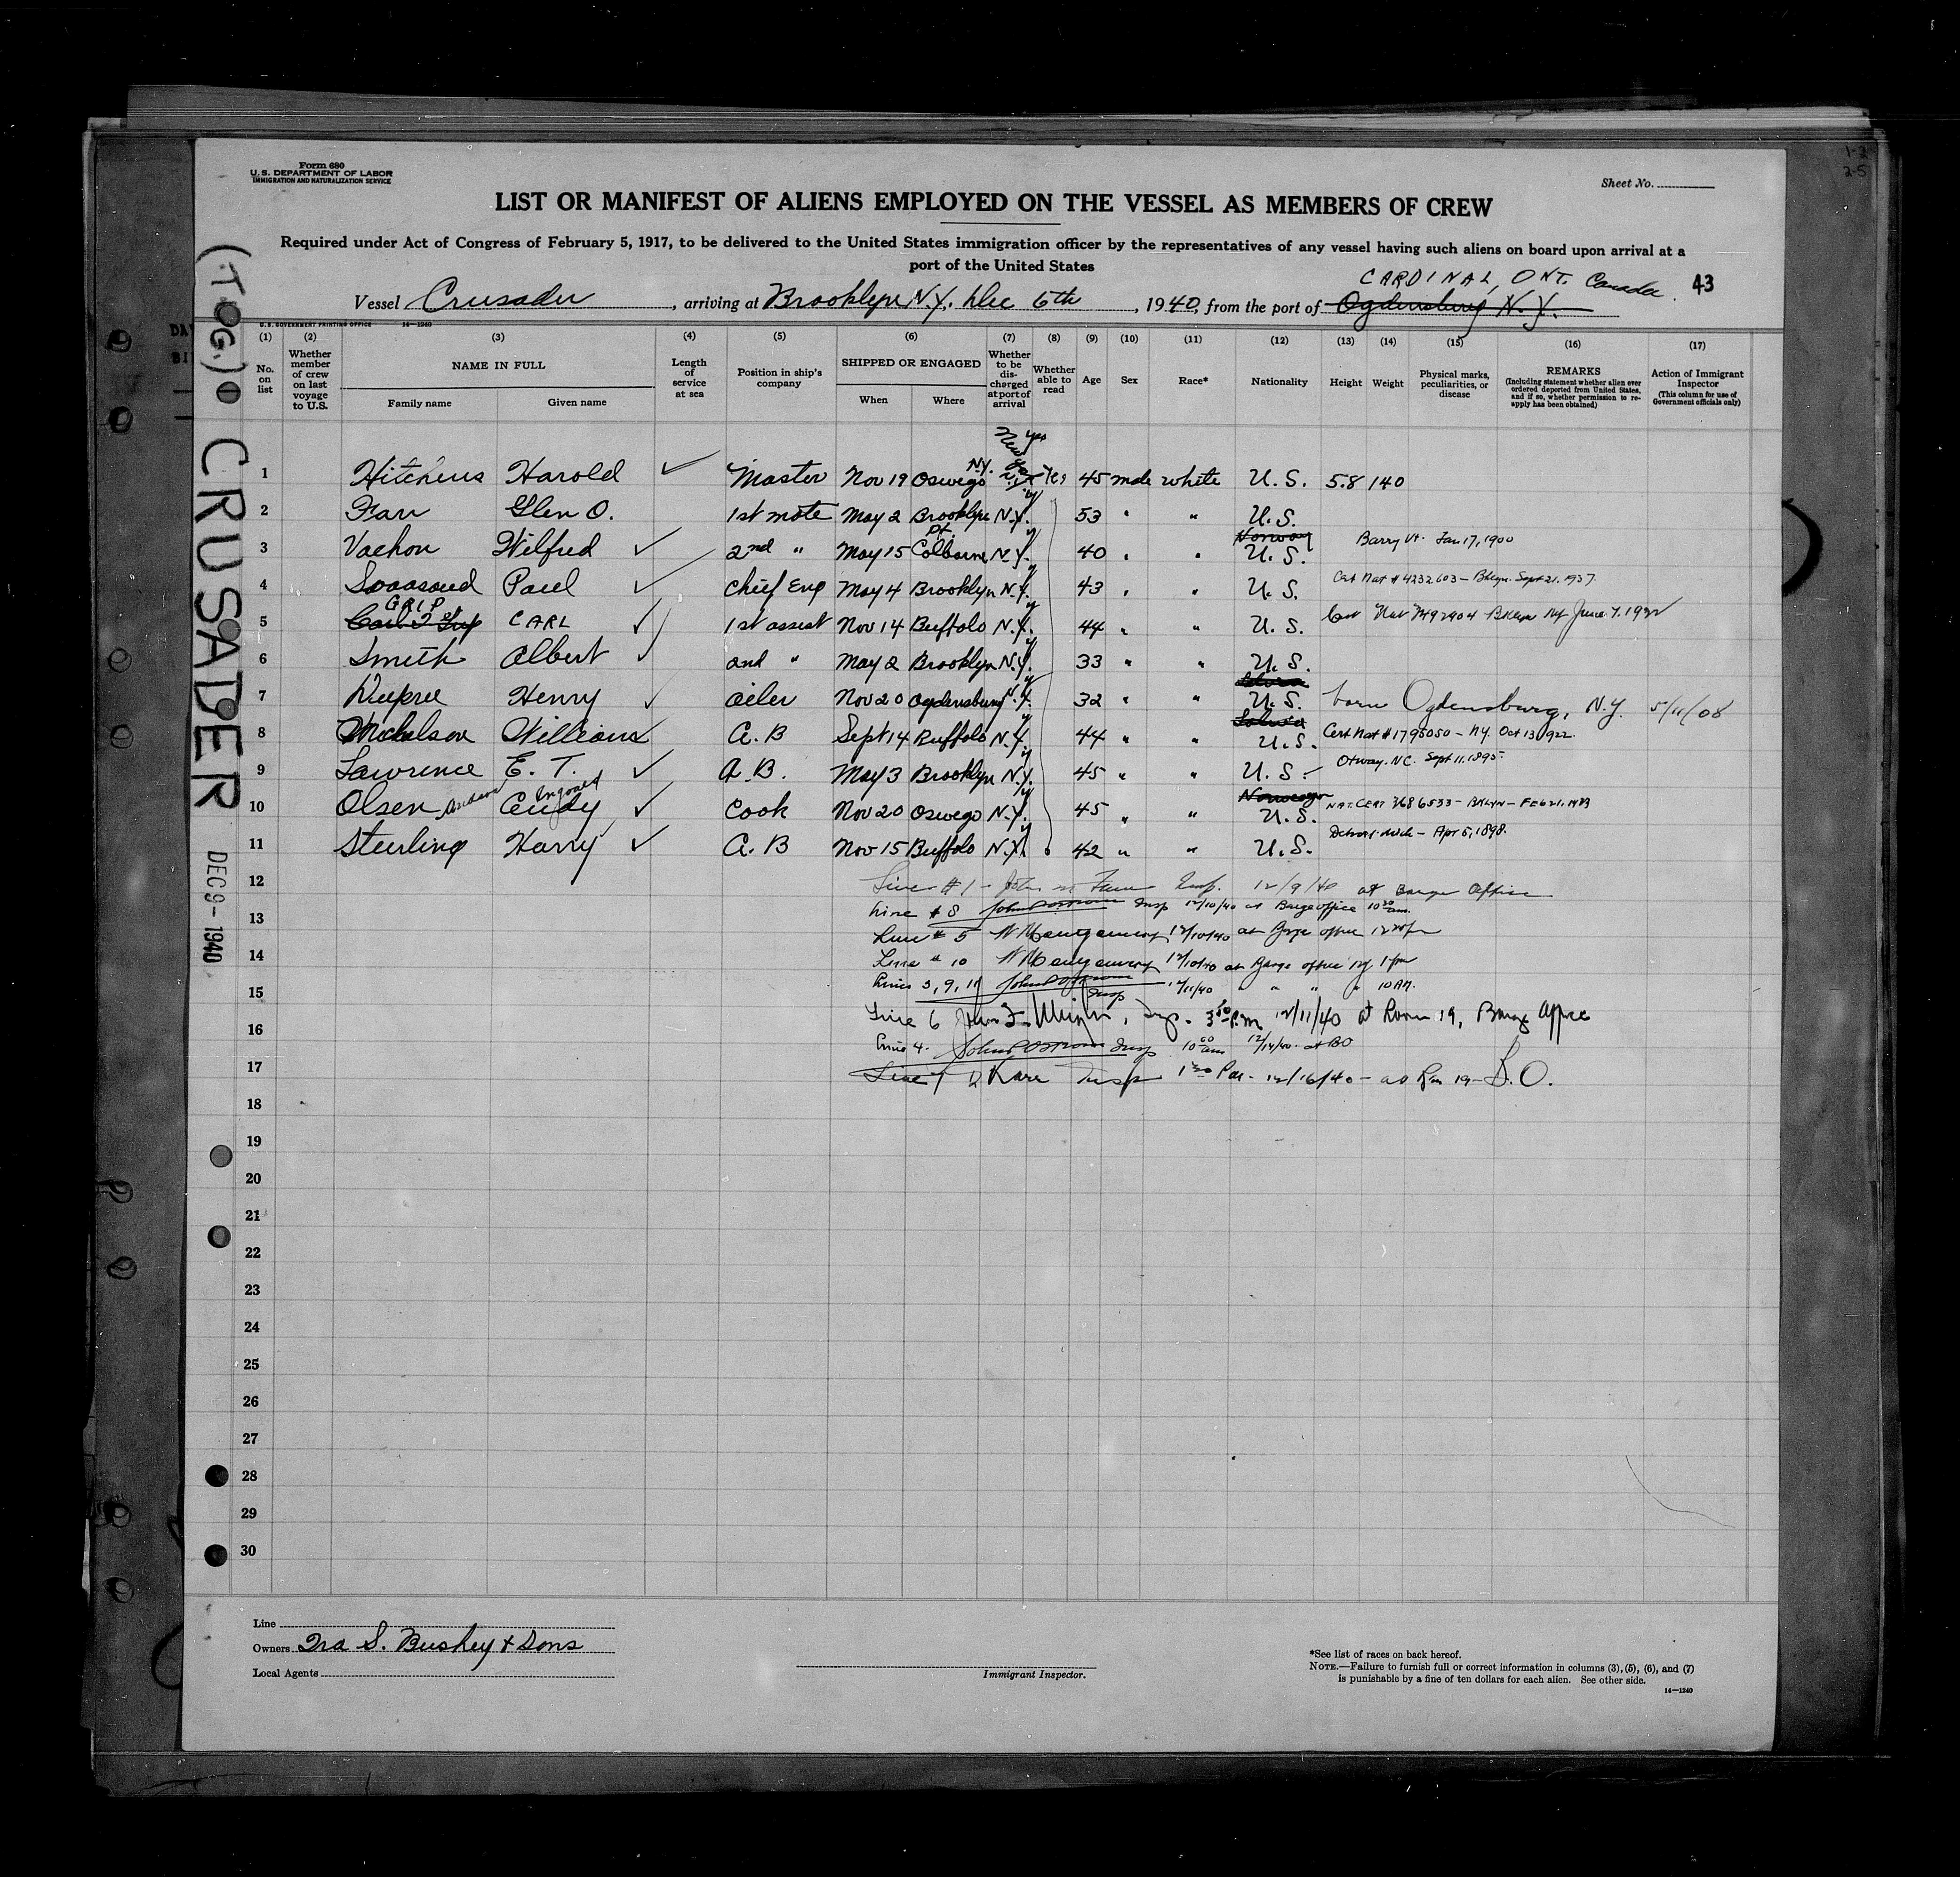 Form 680
U.S. DEPARTMENT OF LABOR
IMMIGRATION AND NATURALIZATION SERVICE
Sheet No.
LIST OR MANIFEST OF ALIENS EMPLOYED ON THE VESSEL AS MEMBERS OF CREW
Required under Act of Congress of February 5, 1917, to be delivered to the United States immigration officer by the representatives of any vessel having such aliens on board upon arrival at a
port of the United States
CARDINAL, ONT. Canada 43
Vessel Crusader, arriving at Brooklyn N.Y. Dec 6th, 1940, from the port of Ogdensburg N.Y.
U.S. GOVERNMENT PRINTING OFFICE 14—1240
(1) (2) (3) (4) (5) (6) (7) (8) (9) (10) (11) (12) (13) (14) (15) (16) (17)
No. on list
Whether member of crew on last voyage to U.S.
NAME IN FULL
Family name Given name
Length of service at sea
Position in ship's company
SHIPPED OR ENGAGED
When Where
Whether to be discharged at port of arrival
Whether able to read
Age
Sex
Race*
Nationality
Height
Weight
Physical marks, peculiarities, or disease
REMARKS
(Including statement whether alien ever ordered deported from United States, and if so, whether permission to reapply has been obtained)
Action of Immigrant Inspector
(This column for use of Government officials only)
1 Hitchens Harold ✓ Master Nov 19 Oswego N.Y. yes 45 male white U.S. 5.8 140
2 Farr Glen O. 1st mate May 2 Brooklyn N.Y. 53 " " U.S.
3 Vachon Wilfred ✓ 2nd " May 15 Pt. Colborne N.Y. 40 " " Norway U.S. Barry Vt. Jan 17, 1900
4 Paul ✓ Chief Eng May 4 Brooklyn N.Y. 43 " " U.S. Cert Nat # 4232603 – Bklyn. Sept 21. 1937.
5 GRIP CARL ✓ 1st assist Nov 14 Buffalo N.Y. 44 " " U.S. Cert Nat Bklyn NY June 7. 1932
6 Smith Albert ✓ 2nd " May 2 Brooklyn N.Y. 33 " " U.S.
7 Dupree Henry ✓ oiler Nov 20 Ogdensburg N.Y. 32 " " U.S. born Ogdensburg, N.Y. 5/11/08
8 Michelson William ✓ A.B Sept 14 Buffalo N.Y. 44 " " U.S. Cert Nat # 1795050 – NY. Oct 13 1922.
9 Lawrence E. T. ✓ A.B. May 3 Brooklyn N.Y. 45 " " U.S. Otway. NC. Sept 11. 1895.
10 Olsen Andy Ingvald ✓ Cook Nov 20 Oswego N.Y. 45 " " U.S. NAT. CERT 3686533 – BKLYN – FEB 21.
11 Sterling Harry ✓ A.B Nov 15 Buffalo N.Y. 42 " " U.S. Detroit Mich – Apr 5, 1898.
12 Line # 1 – John Insp. 12/9/40 at Barge Office
13 Line # 8 Insp 12/10/40 at Barge office 10 30 am.
Line # 5 W Montgomery 12/10/40 at Barge office
14 Line # 10 W Montgomery 12/10/40 at Barge office NY 1 pm
15 Lines 3, 9, 11 Insp 12/11/40 " " " " 10 AM.
16 Line 6 Insp. 3 50 P.M. 12/11/40 at Room 19, Barge Office
17 Line 4. Insp 10 00 am 12/14/40. at BO
Line 7 Insp 12/16/40 – at Rm 19 – B.O.
18
19
20
21
22
23
24
25
26
27
28
29
30
(TUG.) CRUSADER DEC 9 - 1940
Line
Owners Ira S. Bushey & Sons
Local Agents
Immigrant Inspector.
*See list of races on back hereof.
NOTE.—Failure to furnish full or correct information in columns (3), (5), (6), and (7)
is punishable by a fine of ten dollars for each alien. See other side.
14—1240